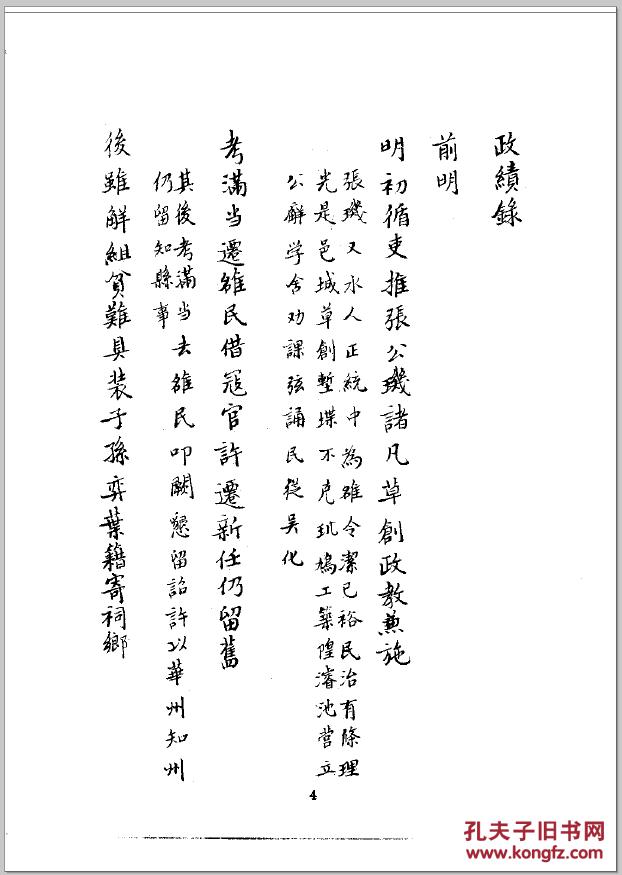 政績錄
前明
明初循吏推張公璣諸凡草創政教兼施
張璣文水人正統中為雒令潔己裕民治有條理
先是邑城草創塹堞不克璣鳩工築隍濬池營立
公廨学舍劝課弦誦民從吴化
考滿当遷雒民借冦官許遷新任仍留舊
其後考滿当去雒民叩闕懇留詔許以華州知州
仍留知縣事
後雖解組貧難具装子孫弈葉籍寄祠鄉
4
孔夫子旧书网
www.kongfz.com